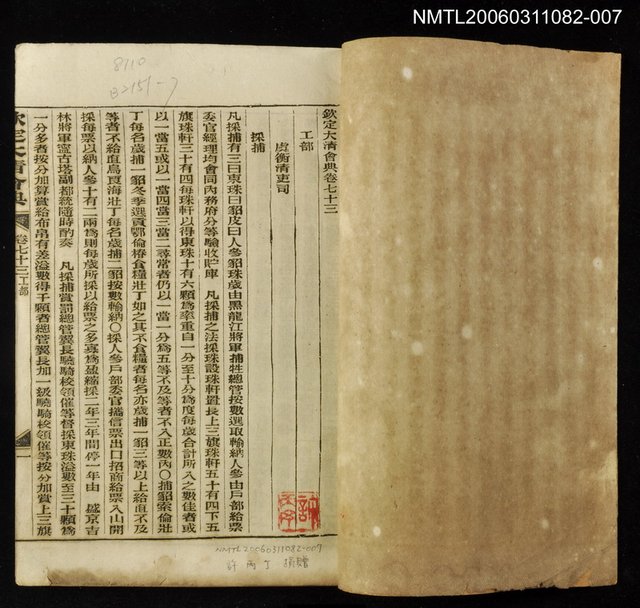 NMTL20060311082-007
8/10
B2151-7
欽定大清會典卷七十三
工部
虞衡清吏司
採捕
凡採捕有三曰東珠曰貂皮曰人參貂珠歲由黑龍江將軍捕牲總管按數選取輸納人參由戶部給票
委官經理均會同內務府分等驗收貯庫 凡採捕之法採珠設珠軒置長上三旗珠軒五十有四下五
旗珠軒三十有四每珠軒以得東珠十有六顆爲率重自一分至十分爲度每歲合計所入之數佳者或
以一當五或以一當四當三當二尋常者仍以一當一分爲五等不及等者不入正數內〇捕貂索倫壯
丁每名歲捕一貂冬季選貢鄂倫椿食糧壯丁如之其不食糧者每名亦歲捕一貂三等以上給直不及
等者不給直烏艮海壯丁每名歲捕二貂按數輸納〇採人參戶部委官攜信票出口招商給票入山開
採每票以納人參十有二兩爲則每歲所採以給票之多寡爲盈縮採二年三年間停一年由 盛京吉
林將軍寧古塔副都統隨時酌奏 凡採捕賞罰總管翼長驍騎校領催等督採東珠溢數至三十顆爲
一分多者按分加算賞給布帛有差溢數得千顆者總管翼長加一級驍騎校領催等按分加賞上三旗
欽定大清會典
卷七十三工部
一
NMTL20060311082-007
許丙丁 捐贈